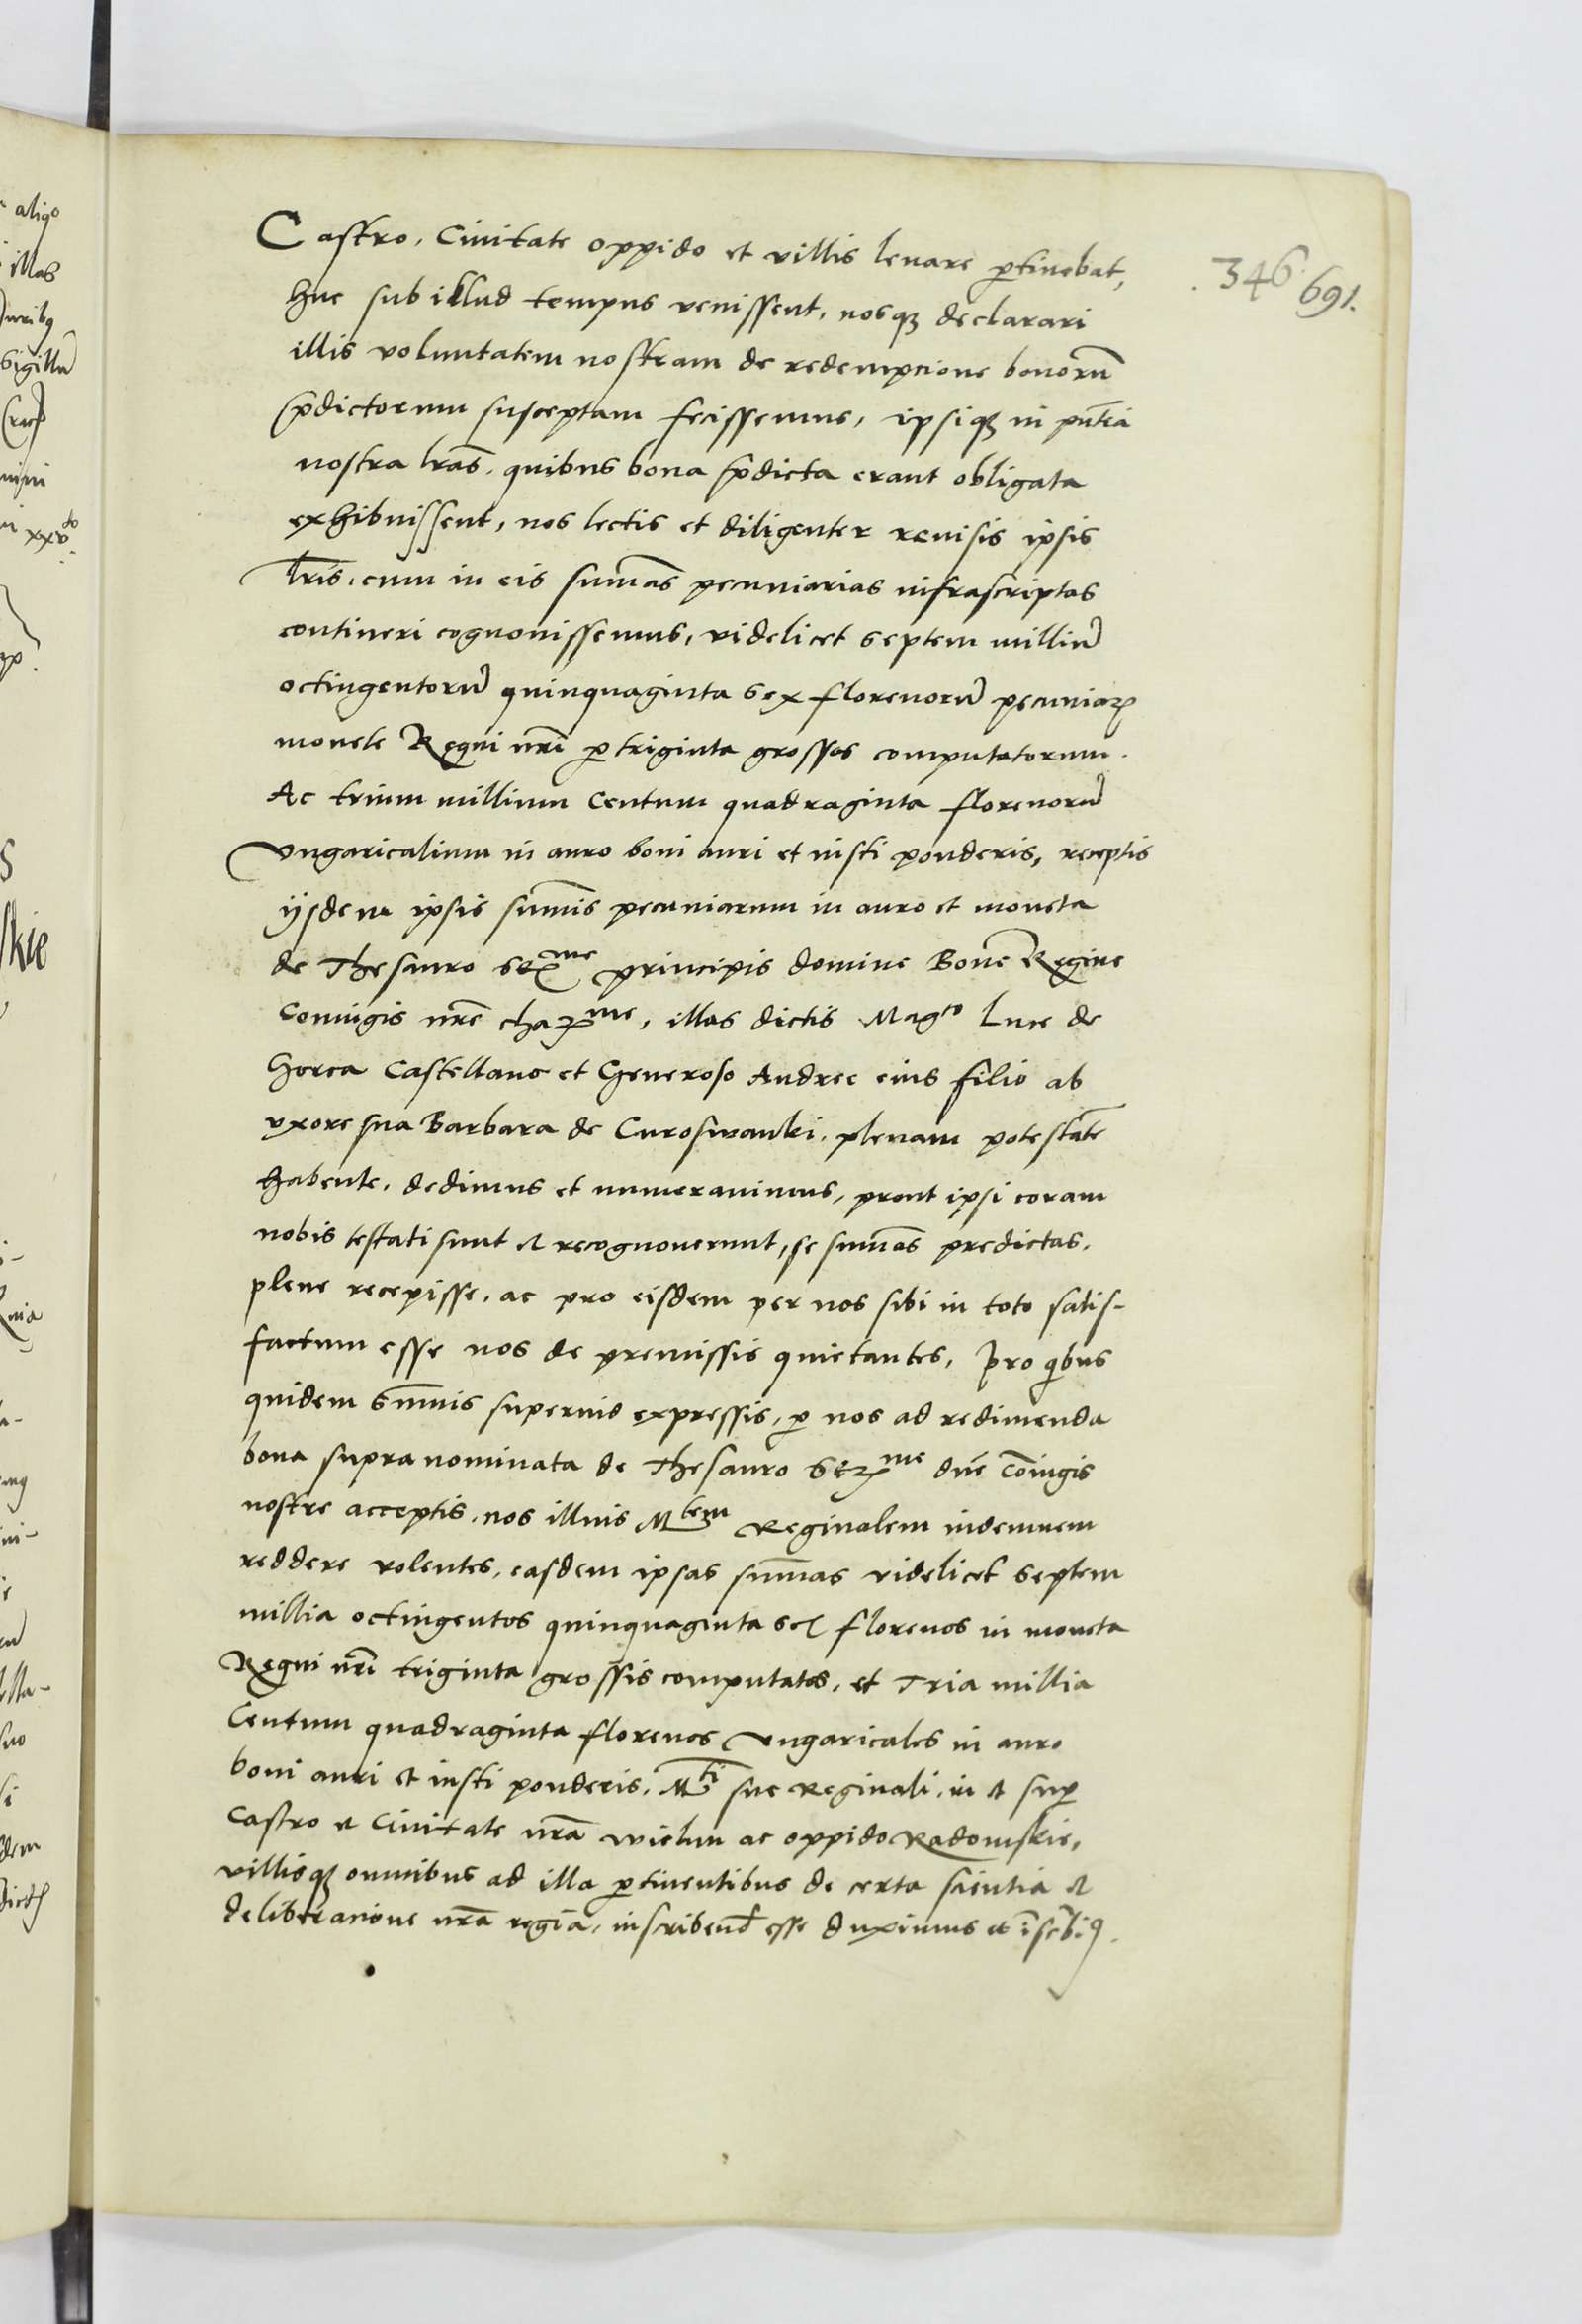 346. 691.
Castro, Civitate oppido et villis levare ꝑtinebat,
huc sub illud tempus venissent, nosqꝫ declarari
illis voluntatem nostram de redempcione bonorū
p̄dictorum susceptam fecissemus, ipsiqꝫ in pñtia
nostra lras̄, quibus bona p̄dicta erant obligata
exhibuissent, nos lectis et diligenter revisis ipsis
lris̄, cum in eis sum̄as pecuniarias infrascriptas
contineri cognovissemus, videlicet septem milliū
octingentorū quinquaginta sex florenorū pecuniaꝝ
monete Regni nrī ꝑ triginta grossos computatorum.
Ac trium millium Centum quadraginta florenorū
Vngaricalium in auro boni auri et iusti ponderis, receptis
ijsdem ipsis sum̄is pecuniarum in auro et moneta
de Thesauro Seꝝme principis domine Bone Regine
Coniugis nrē chaꝝme, illas dictis Magco Luce de
Gorca Castellano et Generoso Andree eius filio ab
vxore sua Barbara de Curoswanki, plenam potestatē
habente, dedimus et numeravimus, prout ipsi coram
nobis testati sunt et recognoverunt, se sum̄as predictas,
plene recepisse, ac pro eisdem per nos sibi in toto satis-
factum esse nos de premissis quietantes, Pro qibus
quidem Sum̄is superius expressis, ꝑ nos ad redimenda
bona supra nominata de Thesauro Seꝝme dnē Cōiugis
nostre acceptis, nos illius Mtem Reginalem indemnem
reddere volentes, easdem ipsas sum̄as videlicet Septem
millia octingentos quinquaginta sex florenos in moneta
Regni nrī triginta grossis computatos, et Tria millia
Centum quadraginta florenos Vngaricales in auro
boni auri et iusti ponderis, Mti sue Reginali, in et suꝑ
Castro et Civitate nrā Wielun ac oppido Radomskie,
villisqꝫ omnibus ad illa ꝑtinentibus de certa scientia et
deliberacione nrā regia, inscribend esse duximus et īscribimꝰ.